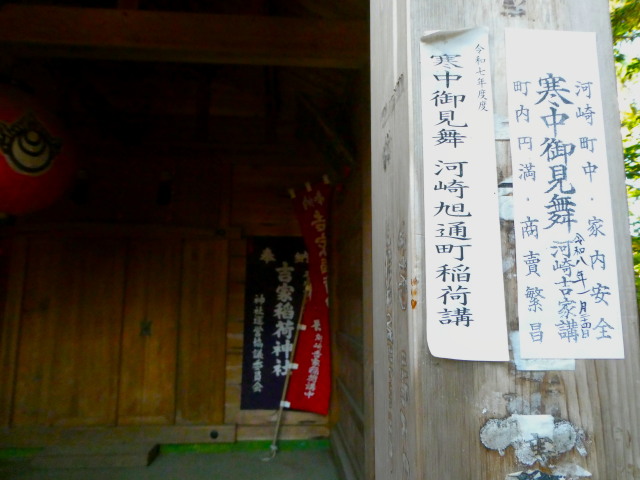 河崎町中・家内安全
寒中御見舞
河崎吉家講
令和八年一月二四日
町内円満・商賣繁昌
令和七年度度
寒中御見舞 河崎旭通町稲荷講
奉納
吉家稲荷神社
神社運営協議委員会